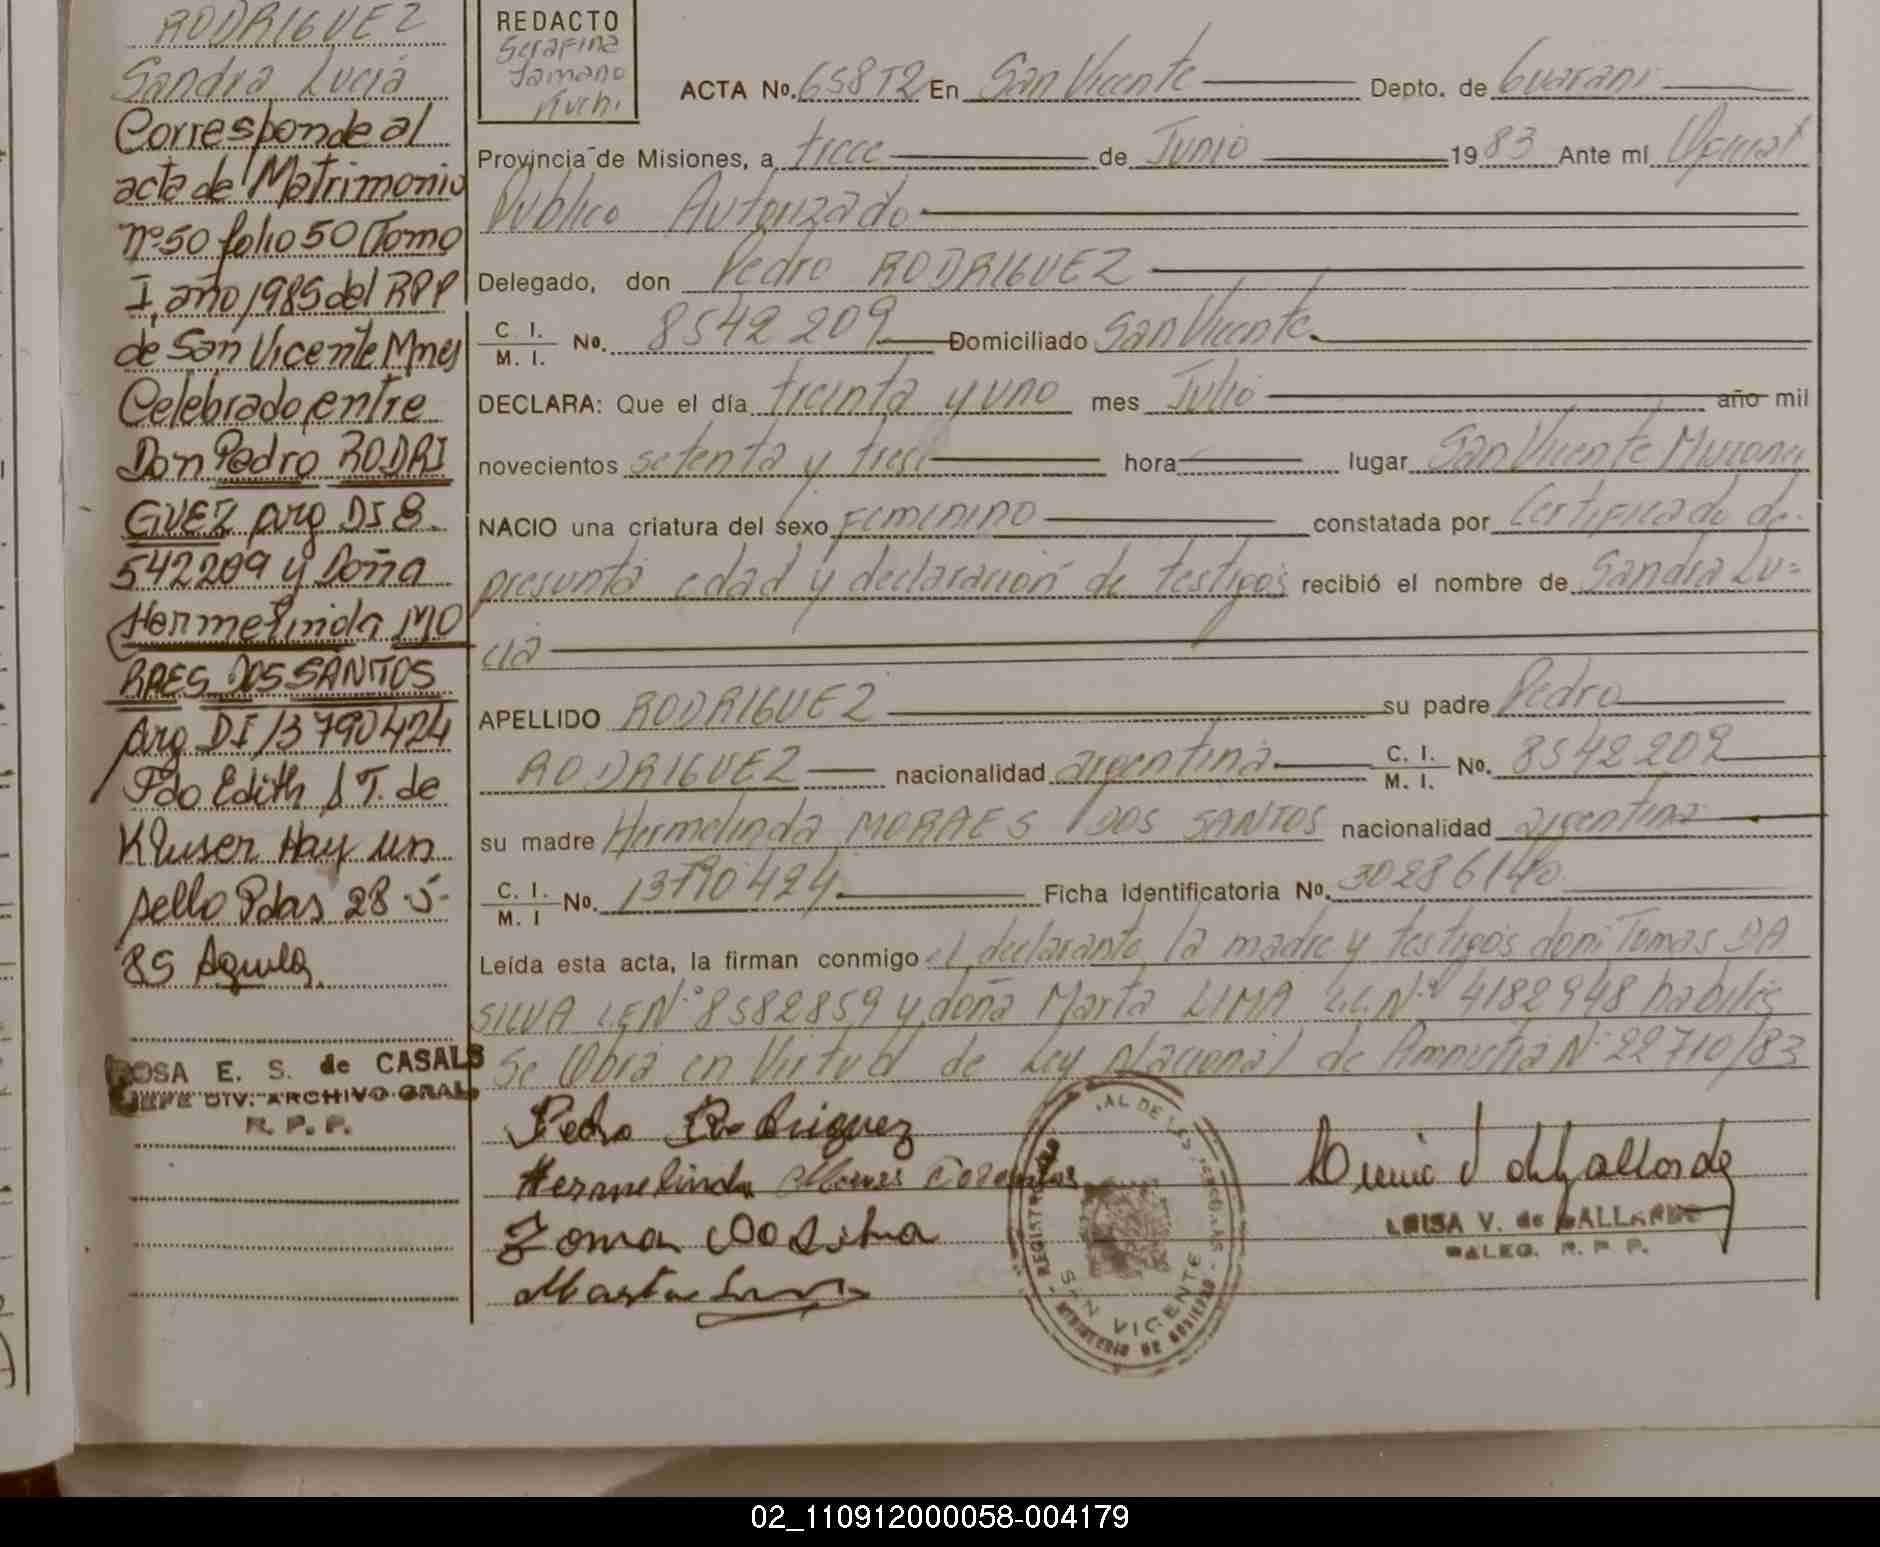 RODRIGUEZ
Sandra Lucia
Corresponde al
acta de Matrimonio
nº 50 folio 50 Tomo
I, año 1985 del RPP
de San Vicente Mnes
Celebrado entre
Don Pedro RODRI
GUEZ arg DI 8.
542209 y Doña
Hermelinda MO
RAES DOS SANTOS
arg DI 13790424
Fdo Edith S T. de
Kluser Hay un
sello Pdas 28-5-
85 Aguila
ROSA E. S. de CASALS
JEFE DIV. ARCHIVO GRAL.
R. P. P.
REDACTO
Serafina
ACTA No. 658 T2 En San Vicente Depto. de Guarani
Provincia de Misiones, a trece de Junio 1983 Ante mí
Publico Autorizado
Delegado, don Pedro RODRIGUEZ
C. I. / M. I. No. 8542209 Domiciliado San Vicente.
DECLARA: Que el día treinta y uno mes Julio año mil
novecientos setenta y tres hora lugar San Vicente Misiones
NACIO una criatura del sexo FEMENINO constatada por Certificado de
presunta edad y declaración de testigos recibió el nombre de Sandra Lu=
cia
APELLIDO RODRIGUEZ su padre Pedro
RODRIGUEZ nacionalidad argentina C. I. / M. I. No. 8542209
su madre Hermelinda MORAES DOS SANTOS nacionalidad argentina
C. I. / M. I No. 13790424 Ficha identificatoria No. 30286140
Leída esta acta, la firman conmigo el declarante, la madre y testigos don: Tomas DA
SILVA L.E.Nº 8582859 y doña Marta LIMA L.C.Nº 4182948 habiles
Se Obra en Virtud de Ley Nacional de Amnistia Nº 22710/83
Pedro Rodriguez
Hermelinda
Marta
REGISTRO
SAN VICENTE
MINISTERIO DE GOBIERNO
LUISA V. de GALLARDO
DALEG. R. P. P.
02_110912000058-004179